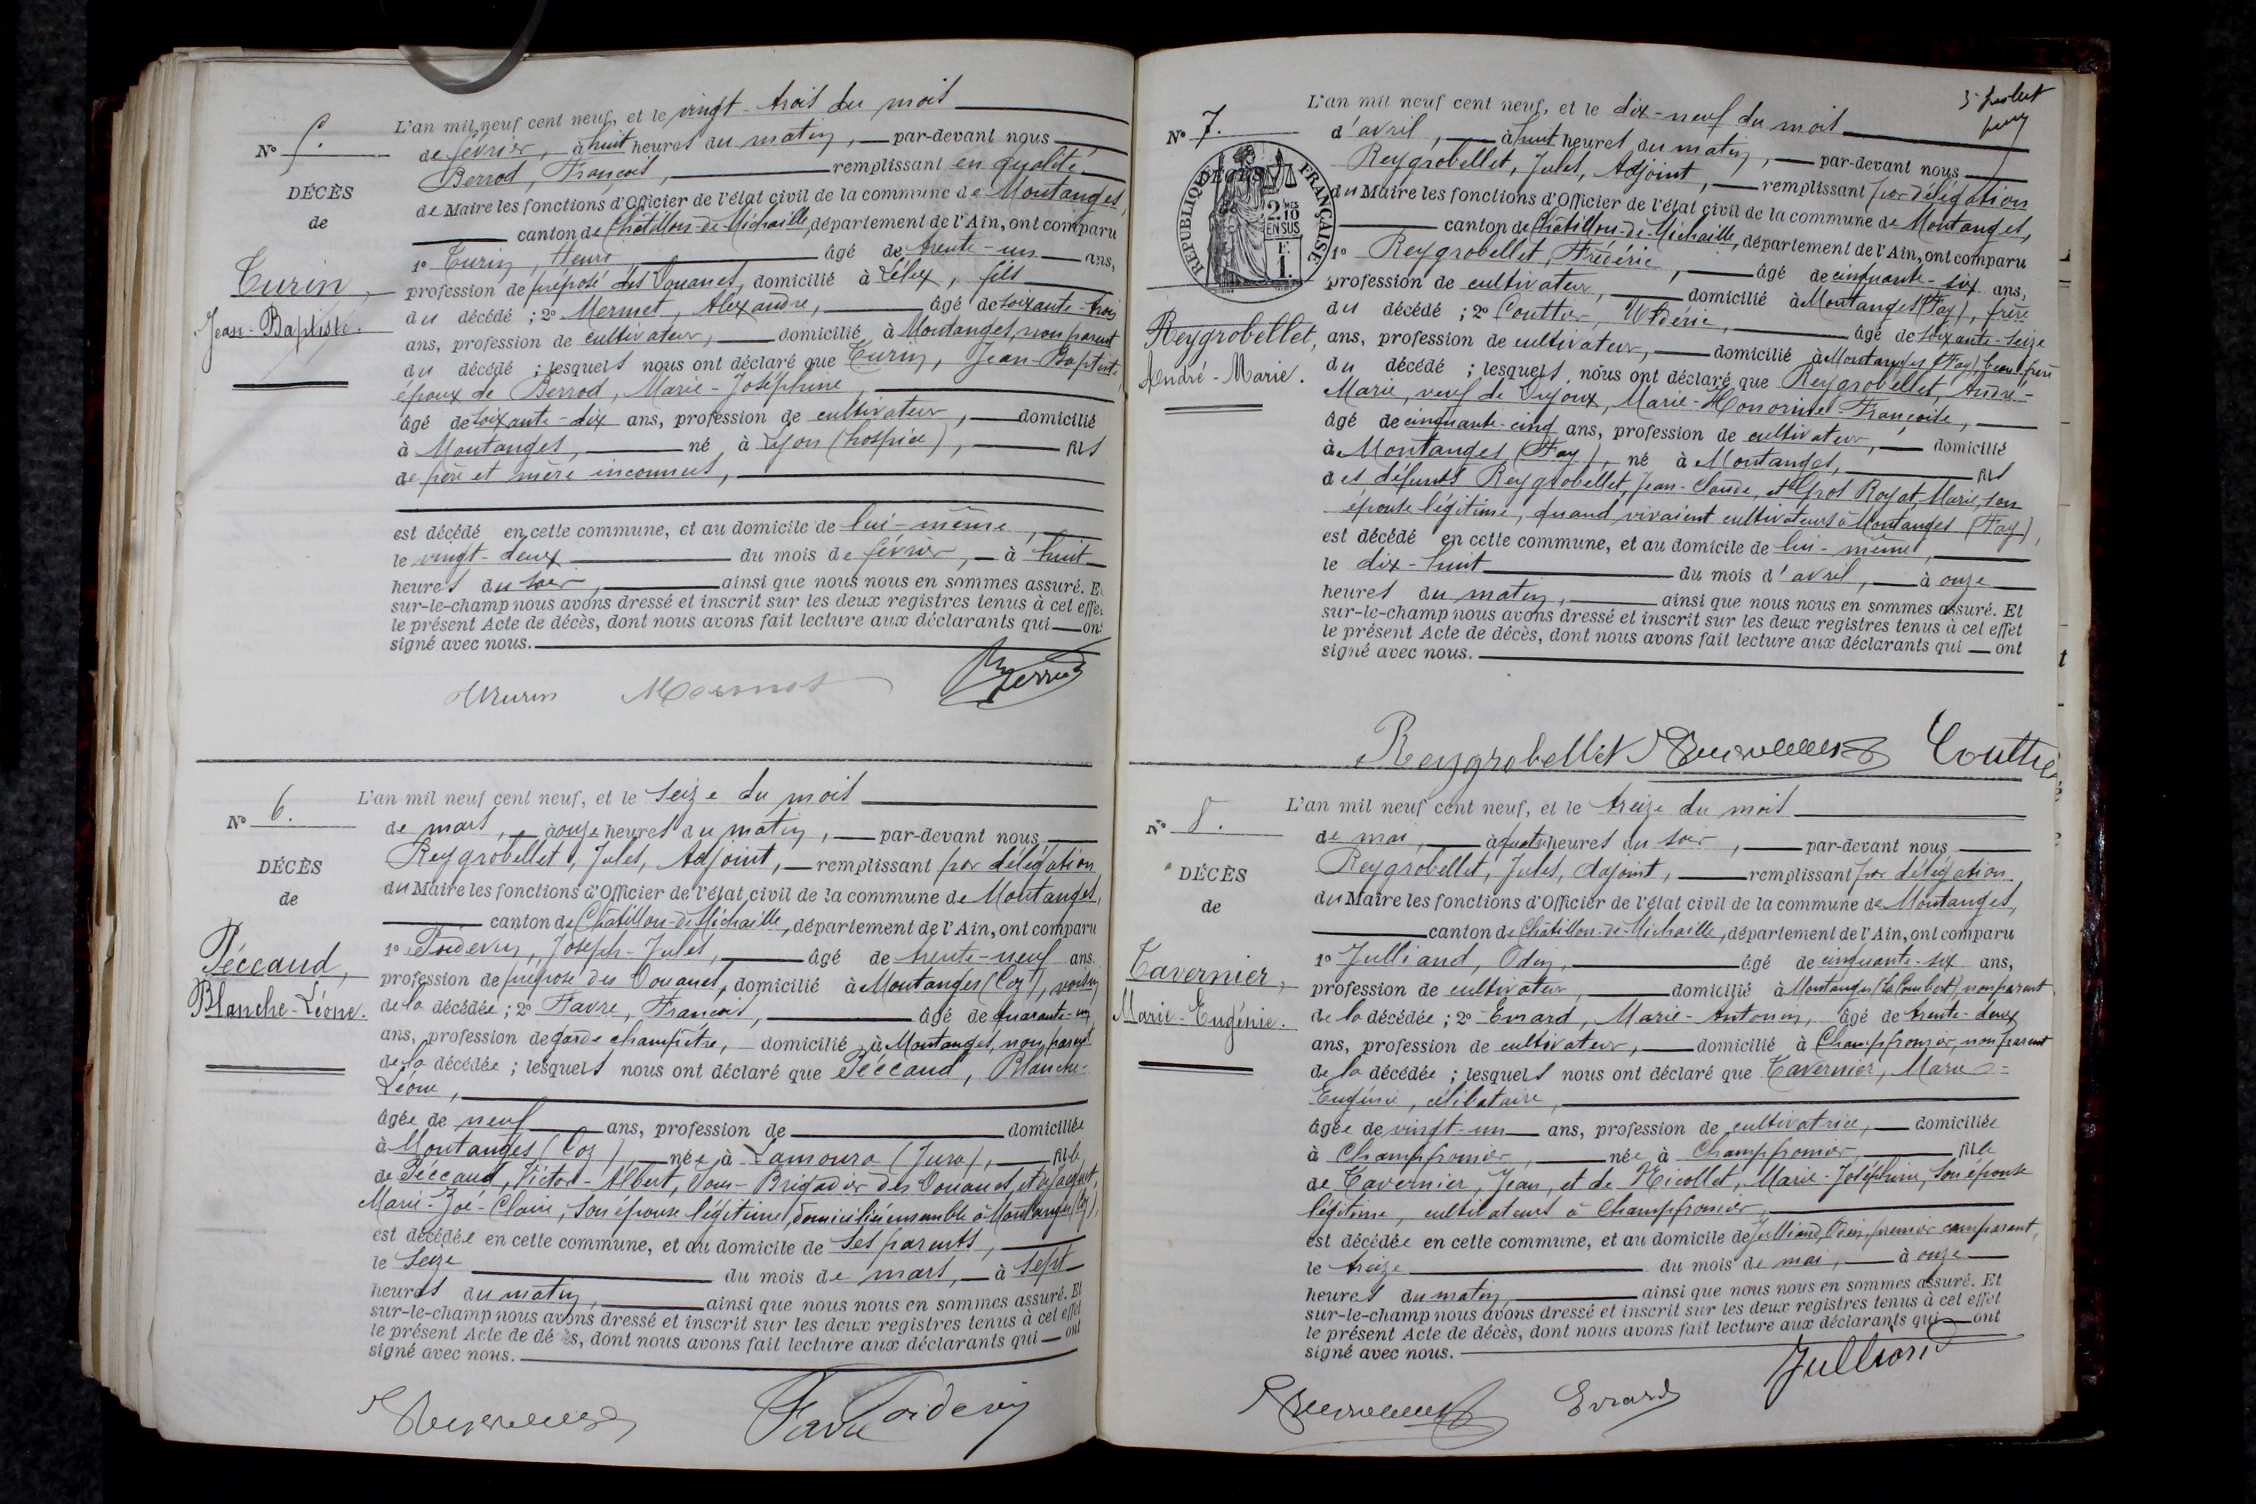 N° 5.
DÉCÈS
de
Turin,
Jean-Baptiste.
L'an mil neuf cent neuf, et le vingt-trois du mois
de février, à huit heures du matin, par-devant nous
Berrod, François, remplissant en qualité
de Maire les fonctions d'Officier de l'état civil de la commune de Montanges,
canton de Châtillon-de-Michaille, département de l'Ain, ont comparu
1° Turin, Henri, âgé de trente-un ans,
profession de préposé des Douanes, domicilié à Lélex, fils
du décédé ; 2° Mermet, Alexandre, âgé de soixante-trois
ans, profession de cultivateur, domicilié à Montanges, non parent
du décédé ; lesquels nous ont déclaré que Turin, Jean-Baptiste,
époux de Berrod, Marie-Joséphine,
âgé de soixante-dix ans, profession de cultivateur, domicilié
à Montanges, né à Lyon (hospice), fils
de père et mère inconnus,
est décédé en cette commune, et au domicile de lui-même,
le vingt-deux du mois de février, à huit
heures du soir, ainsi que nous nous en sommes assuré. Et
sur-le-champ nous avons dressé et inscrit sur les deux registres tenus à cet effet
le présent Acte de décès, dont nous avons fait lecture aux déclarants qui ont
signé avec nous.
Mermet
N° 6.
DÉCÈS
de
Péccaud,
Blanche-Léone.
L'an mil neuf cent neuf, et le seize du mois
de mars, à onze heures du matin, par-devant nous
Reygrobellet, Jules, Adjoint, remplissant par délégation
du Maire les fonctions d'Officier de l'état civil de la commune de Montanges,
canton de Châtillon-de-Michaille, département de l'Ain, ont comparu
1° Poidevin, Joseph-Jules, âgé de trente-neuf ans,
profession de préposé des Douanes, domicilié à Montanges (Coz), voisin
de la décédée ; 2° Favre, François, âgé de quarante-un
ans, profession de garde champêtre, domicilié à Montanges, non parent
de la décédée ; lesquels nous ont déclaré que Péccaud, Blanche-
Léone,
âgée de neuf ans, profession de domiciliée
à Montanges (Coz), née à Lamoura (Jura), fille
de Péccaud, Victor-Albert, Sous-Brigadier des Douanes, et de Jacquet,
Marie-Zoé-Claire, son épouse légitime, domiciliés ensemble à Montanges (Coz),
est décédée en cette commune, et au domicile de ses parents,
le seize du mois de mars, à sept
heures du matin, ainsi que nous nous en sommes assuré. Et
sur-le-champ nous avons dressé et inscrit sur les deux registres tenus à cet effet
le présent Acte de décès, dont nous avons fait lecture aux déclarants qui ont
signé avec nous.
Favre Poidevin
N° 7.
RÉPUBLIQUE FRANÇAISE
DÉCÈS
2/10 EN SUS
Reygrobellet,
André-Marie.
L'an mil neuf cent neuf, et le dix-neuf du mois
d'avril, à huit heures du matin, par-devant nous
Reygrobellet, Jules, Adjoint, remplissant par délégation
du Maire les fonctions d'Officier de l'état civil de la commune de Montanges,
canton de Châtillon-de-Michaille, département de l'Ain, ont comparu
1° Reygrobellet, Frédéric, âgé de cinquante-six ans,
profession de cultivateur, domicilié à Montanges (Fay), frère
du décédé ; 2° Couttier, âgé de soixante-seize
ans, profession de cultivateur, domicilié à Montanges (Fay) beau-frère
du décédé ; lesquels nous ont déclaré que Reygrobellet, André-
Marie, veuf de Dujoux, Marie-Honorine Françoise,
âgé de cinquante-cinq ans, profession de cultivateur, domicilié
à Montanges (Fay), né à Montanges, fils
des défunts Reygrobellet, Jean-Claude, et Gros Royat, Marie, son
épouse légitime, quand vivaient cultivateurs à Montanges (Fay),
est décédé en cette commune, et au domicile de lui-même,
le dix-huit du mois d'avril, à onze
heures du matin, ainsi que nous nous en sommes assuré. Et
sur-le-champ nous avons dressé et inscrit sur les deux registres tenus à cet effet
le présent Acte de décès, dont nous avons fait lecture aux déclarants qui ont
signé avec nous.
Reygrobellet Couttier
N° 8.
DÉCÈS
de
Tavernier,
Marie-Eugénie.
L'an mil neuf cent neuf, et le treize du mois
de mai, à quatre heures du soir, par-devant nous
Reygrobellet, Jules, Adjoint, remplissant par délégation
du Maire les fonctions d'Officier de l'état civil de la commune de Montanges,
canton de Châtillon-de-Michaille, département de l'Ain, ont comparu
1° Julliand, Odin, âgé de cinquante-six ans,
profession de cultivateur, domicilié à Montanges non parent
de la décédée ; 2° Evrard, Marie-Antonin, âgé de trente-deux
ans, profession de cultivateur, domicilié à Champfromier, non parent
de la décédée ; lesquels nous ont déclaré que Tavernier, Marie=
Eugénie, célibataire,
âgée de vingt-un ans, profession de cultivatrice, domiciliée
à Champfromier, née à Champfromier, fille
de Tavernier, Jean, et de Nicollet, Marie-Joséphine, son épouse
légitime, cultivateurs à Champfromier,
est décédée en cette commune, et au domicile de Julliand, Odin, premier comparant,
le treize du mois de mai, à onze
heures du matin, ainsi que nous nous en sommes assuré. Et
sur-le-champ nous avons dressé et inscrit sur les deux registres tenus à cet effet
le présent Acte de décès, dont nous avons fait lecture aux déclarants qui ont
signé avec nous.
Julliand
Evrard